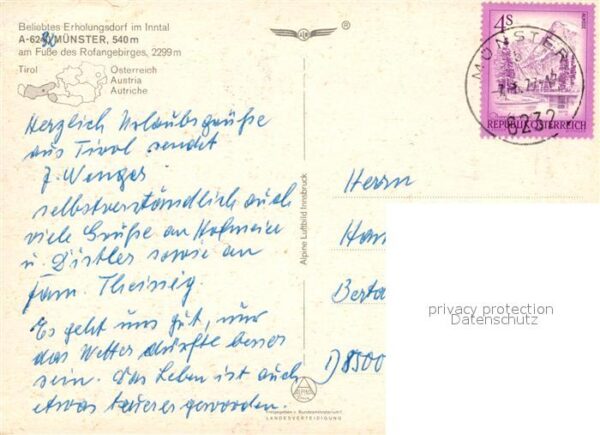 Beliebtes Erholungsdorf im Inntal
A-6232 MÜNSTER, 540 m
am Fuße des Rofangebirges, 2299 m
Tirol
Österreich
Austria
Autriche
Herzlich Urlaubsgrüße
aus Tirol sendet
J. Wenger
selbstverständlich auch
viele Grüße an Hofmeier
u. Distler sowie an
Fam. Theissig.
Es geht uns gut, nur
das Wetter dürfte besser
sein. Das Leben ist auch
etwas teurer geworden.
Alpine Luftbild Innsbruck
Freigegeben v. Bundesministerium f.
LANDESVERTEIDIGUNG
®
4S
REPUBLIK ÖSTERREICH
MÜNSTER
6232
Herrn
Han
Berta
D 8500
privacy protection
Datenschutz